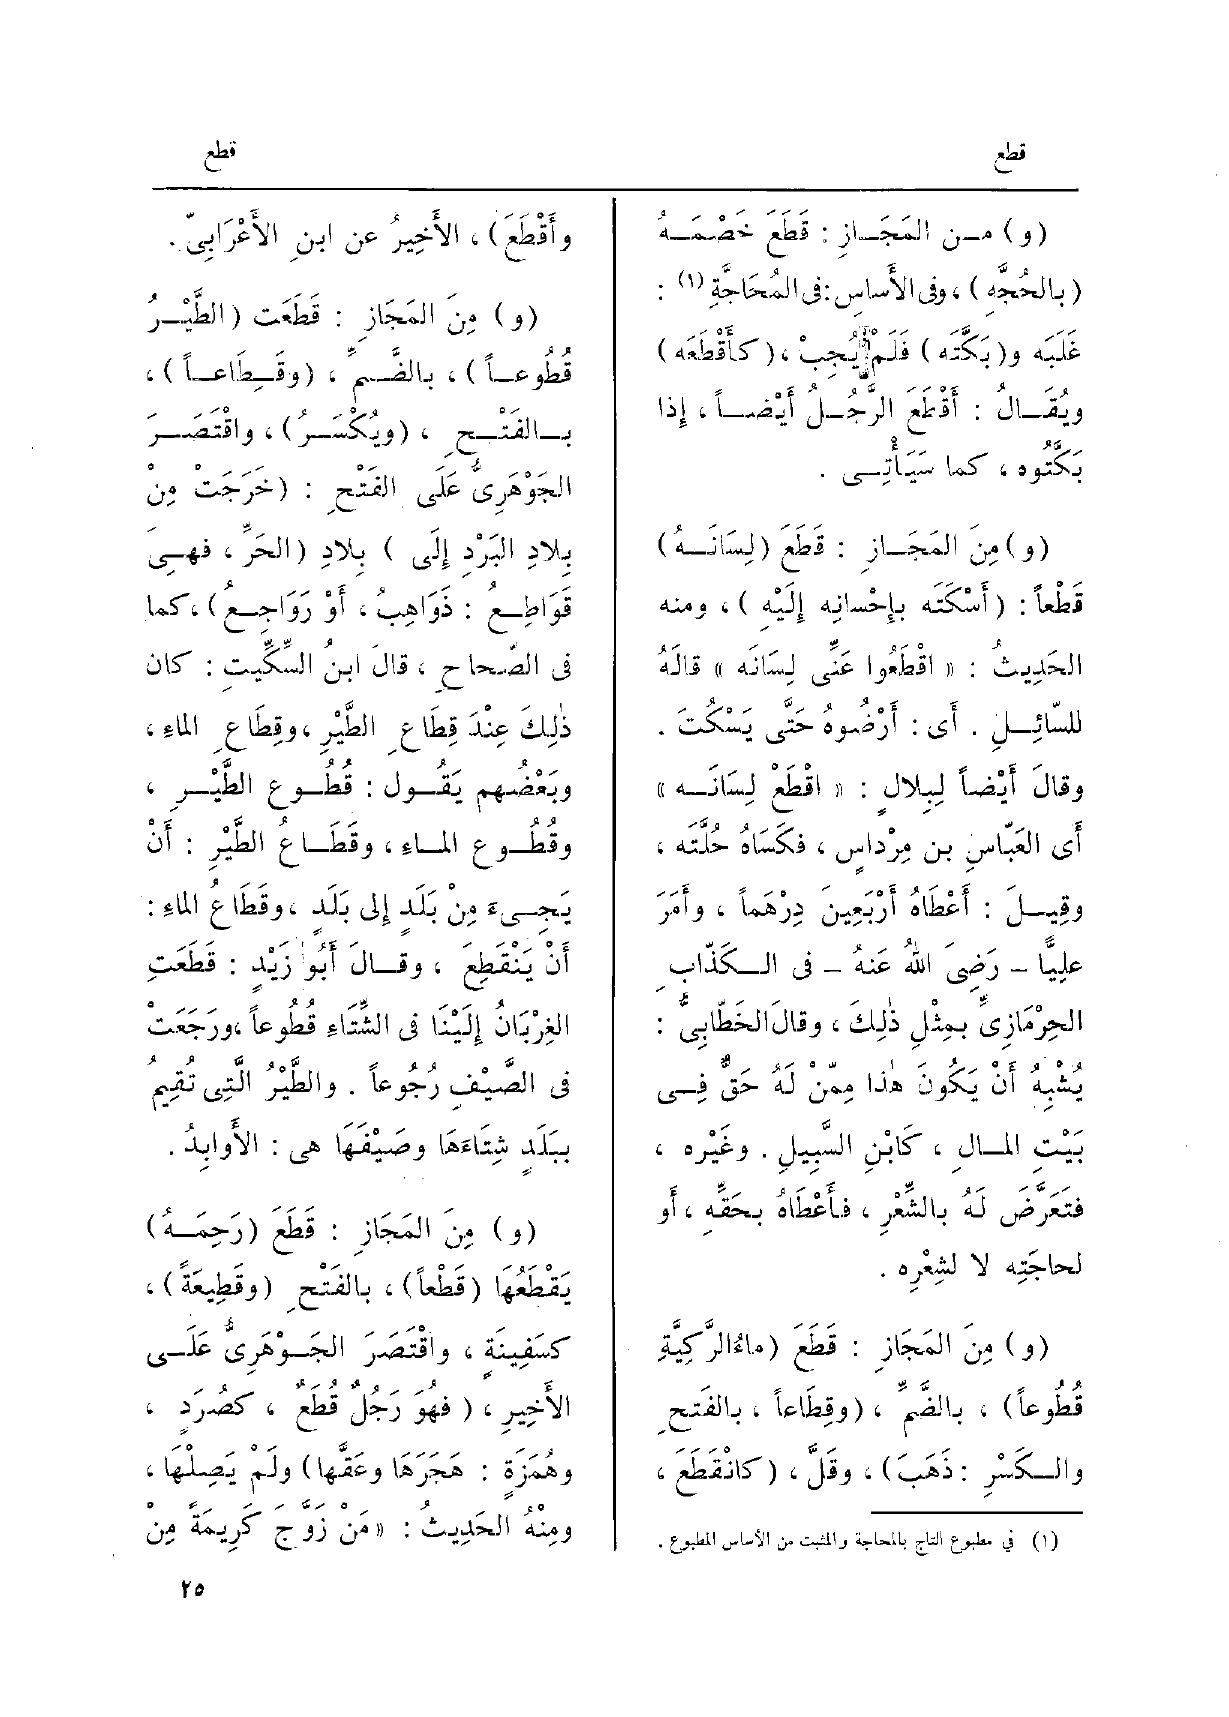 قطع
قطع
(و) مـن المَجَـازِ : قَطَعَ خَصْمَـهُ
(بالحُجَّه) ، وفى الأَساس : فى المُحَاجَّةِ (١) :
غَلَبَه و(بَكَّتَه) فَلَمْ يُجِبْ ، (كأَقْطَعَه)
ويُقَـالُ : أَقْطَعَ الرَّجُلُ أَيْضـاً ، إِذا
بَكَّتُوه ، كما سَيَأْتِـى .
(و) مِنَ المَجَـازِ : قَطَعَ (لِسَانَـهُ)
قَطْعاً : (أَسْكَتَه بإِحْسانِه إِلَيْهِ) ، ومنه
الحَدِيثُ : « اقْطَعُوا عَنِّى لِسَانَه » قالَهُ
للسّائِـلِ . أَى : أَرْضُوهُ حَتَّى يَسْكُتَ .
وقالَ أَيْضاً لِبِلالٍ : « اقْطَعْ لِسَانَـه »
أَى العَبّاسِ بن مِرْداسٍ ، فكَسَاهُ حُلَّتَه ،
وقِيـلَ : أَعْطَاهُ أَرْبَعِينَ دِرْهَماً ، وأَمَرَ
عليًّا – رَضِىَ اللهُ عَنهُ – فى الـكَذّابِ
الحِرْمَازِىِّ بمِثْلِ ذٰلِكَ ، وقالَ الخَطّابِىُّ :
يُشْبِهُ أَنْ يَكُونَ هٰذا مِمّنْ لَهُ حَقٌّ فِـى
بَيْتِ المـالِ ، كَابْنِ السَّبِيلِ . وغَيْرِه ،
فتَعَرَّضَ لَهُ بالشِّعْرِ ، فأَعْطَاهُ بحَقِّهِ ، أَو
لحاجَتِه لا لشِعْرِه .
(و) مِنَ المَجَازِ : قَطَعَ (ماءُ الرَّكِيَّةِ
قُطُوعاً) ، بالضَّمِّ ، (وقِطَاعاً ، بالفَتحِ
والـكَسْرِ : ذَهَبَ) ، وقَلَّ ، (كانْقَطَعَ ،
(١) في مطبوع التاج بالمحاجة والمثبت من الأساس المطبوع .
وأَقْطَعَ) ، الأَخِيرُ عن ابنِ الأَعْرَابِىّ .
(و) مِنَ المَجَازِ : قَطَعَت (الطَّيْـرُ
قُطُوعـاً) ، بالضَّـمِّ ، (وقَـطَاعـاً) ،
بـالفَتْـحِ ، (ويُكْسَـرُ) ، واقْتَصَـرَ
الجَوْهَرِىُّ عَلَى الفَتْحِ : (خَرَجَتْ مِنْ
بِلادِ البَرْدِ إِلَى ) بِلادِ (الحَرِّ ، فهـىَ
قَوَاطِـعُ : ذَوَاهِبُ ، أَوْ رَوَاجِـعُ) ، كما
فى الصّحاحِ ، قالَ ابنُ السِّكِّيتِ : كان
ذٰلِكَ عِنْدَ قِطَاعِ الطَّيْرِ ، وقِطَاعِ الماءِ ،
وبَعْضُهم يَقُـول : قُطُـوع الطَّيْـرِ ،
وقُطُـوع المـاءِ ، وقَطَـاعُ الطَّيْرِ : أَنْ
يَجِـىءَ مِنْ بَلَدٍ إِلى بَلَدٍ ، وقَطَاعُ الماءِ :
أَنْ يَنْقَطِعَ ، وقـالَ أَبُو زَيْدٍ : قَطَعَتِ
الغِرْبَانُ إِلَيْنَا فى الشِّتَاءِ قُطُوعاً ، ورَجَعَتْ
فى الصَّيْفِ رُجُوعاً . والطَّيْرُ الَّتِى تُقِيمُ
ببَلَدٍ شِتَاءَهَا وصَيْفَهَا هى : الأَوابِدُ .
(و) مِنَ المَجَازِ : قَطَعَ (رَحِمَـهُ)
يَقْطَعُهَا (قَطْعاً) ، بالفَتْحِ (وقَطِيعَةً) ،
كسَفِينَةٍ ، واقْتَصَرَ الجَـوْهَرِىُّ عَلَـى
الأَخِيرِ ، (فهُوَ رَجُلٌ قُطَعٌ ، كصُرَدٍ ،
وهُمَزَةٍ : هَجَرَهَا وعَقَّها) ولَم يَصِلْها ،
ومِنْهُ الحَدِيثُ : « مَنْ زَوَّجَ كَرِيمَةً مِنْ
٢٥